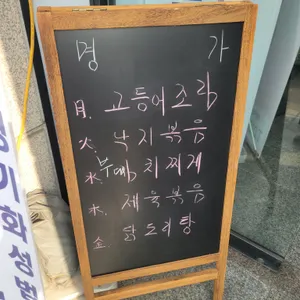 명 가
月. 고등어조림
火. 낙지볶음
水. 부대찌개
木. 제육볶음
金. 닭도리탕
기화성